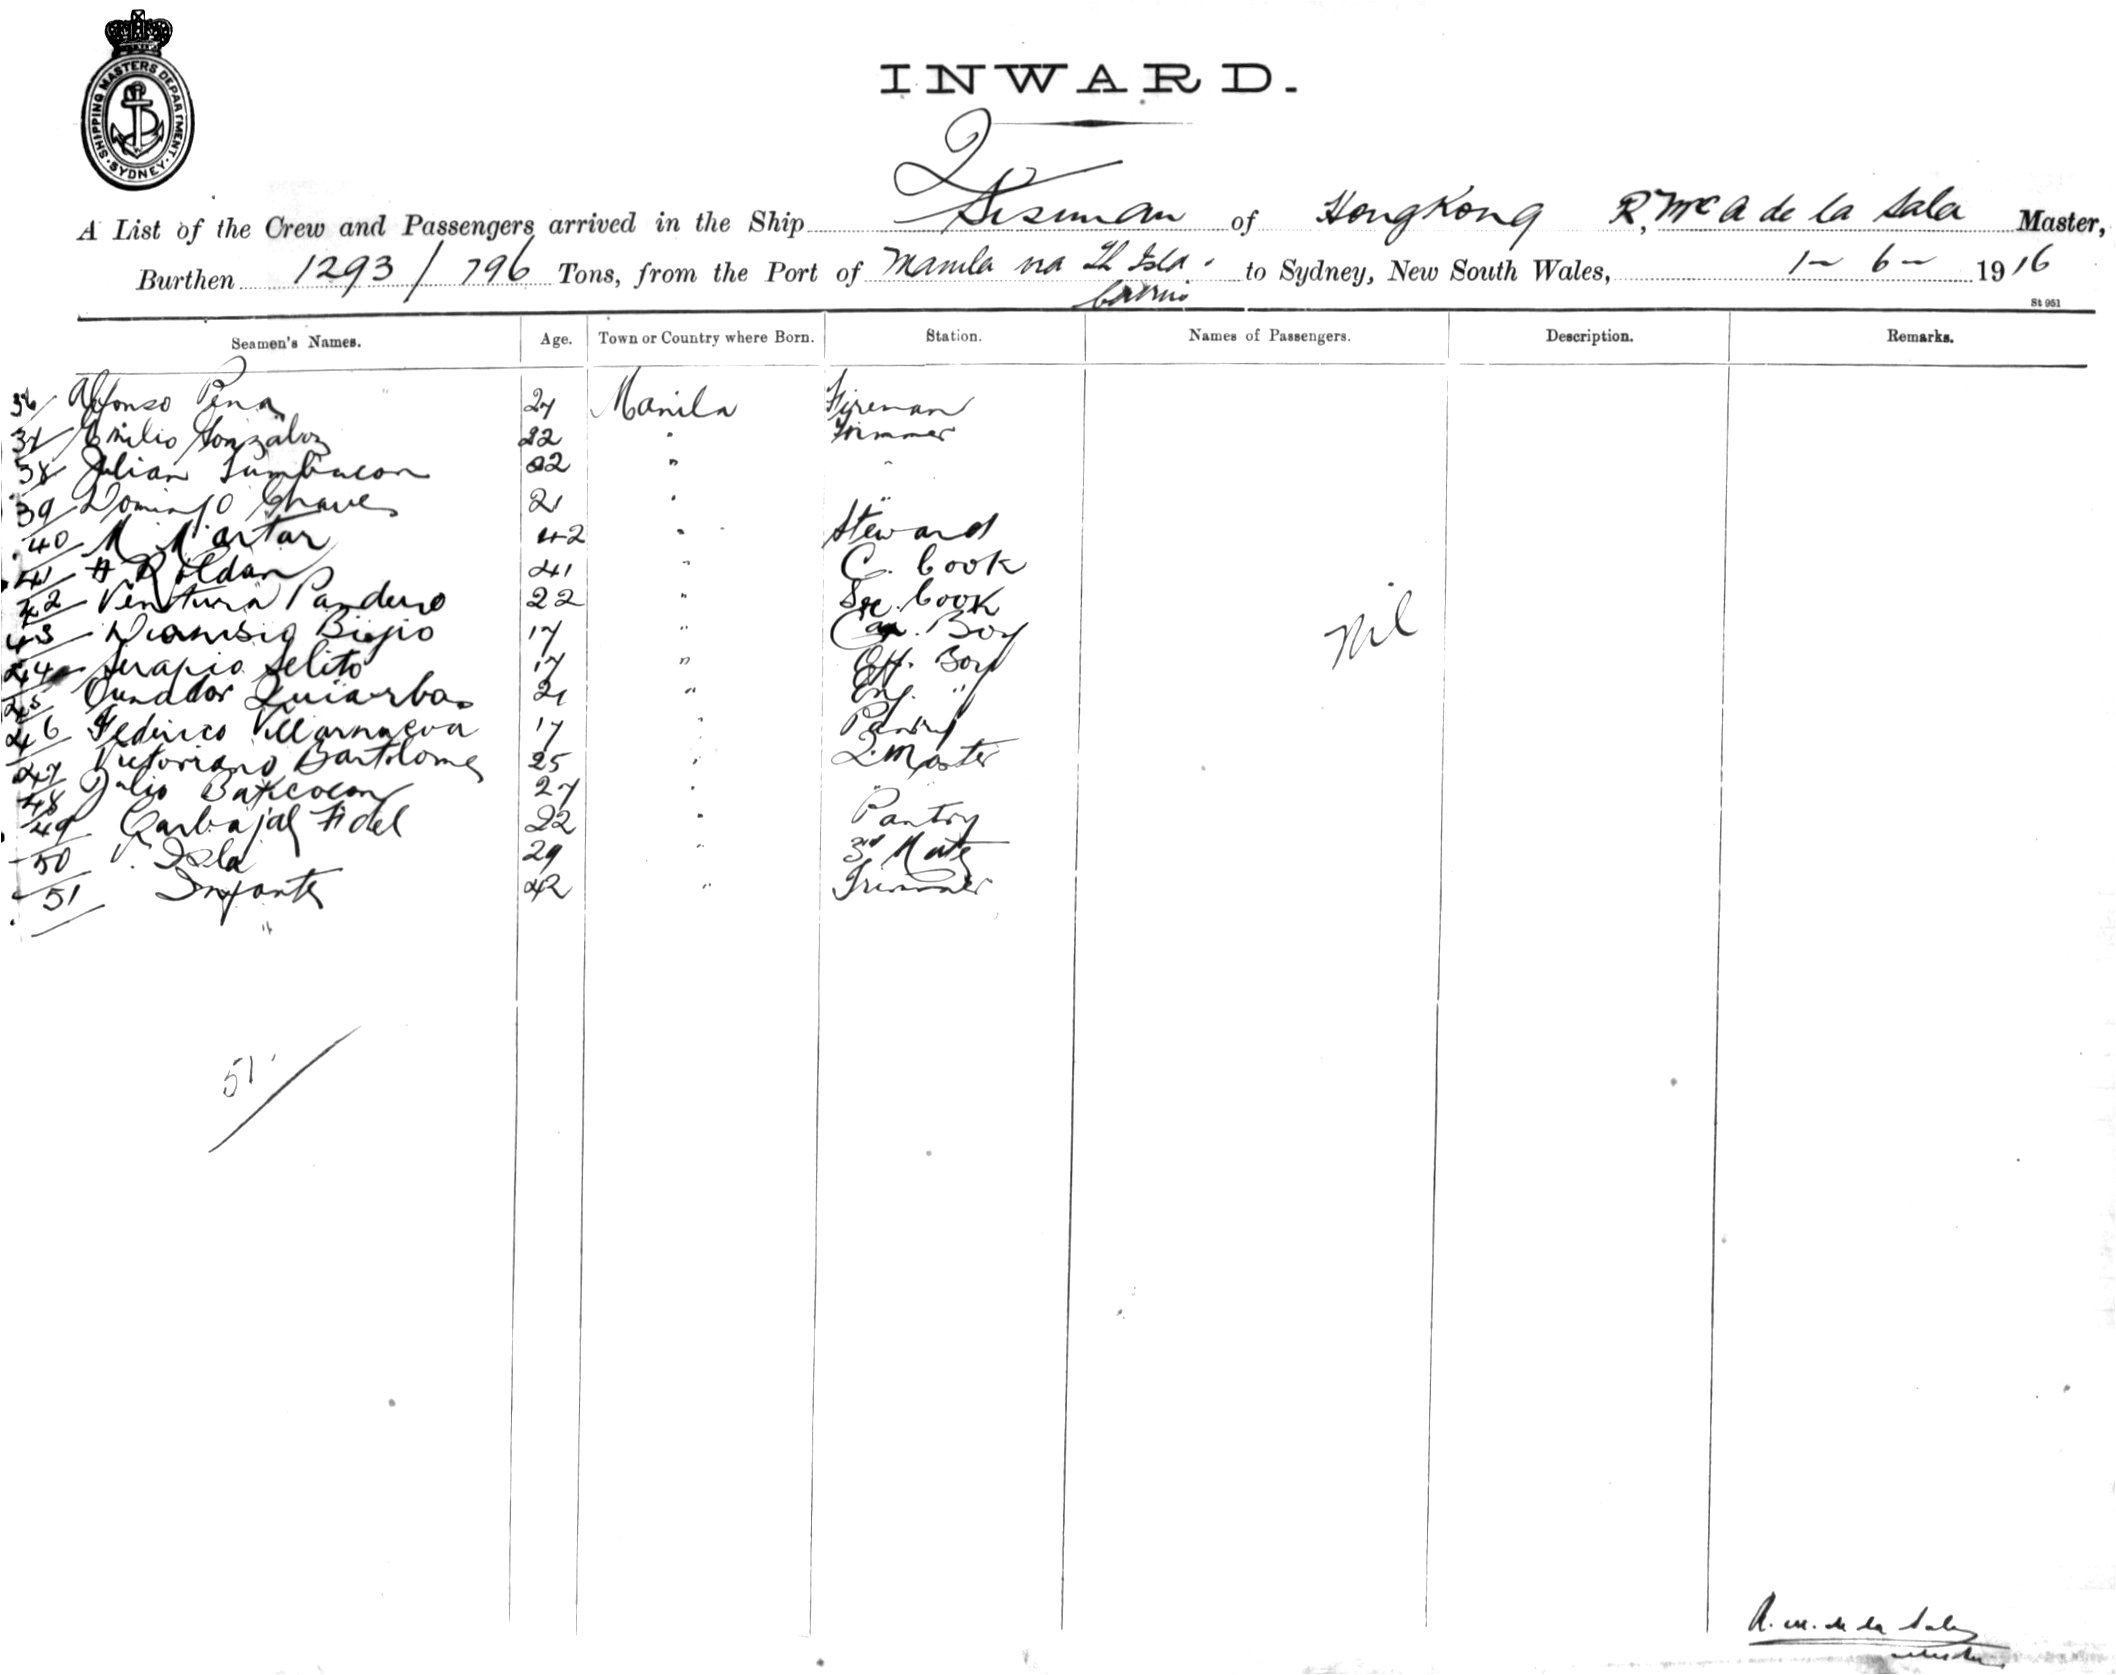 SHIPPING MASTERS DEPARTMENT. SYDNEY.
INWARD.
2
A List of the Crew and Passengers arrived in the Ship Kisuman of HongKong R, McA de la Sala Master,
Burthen 1293/796 Tons, from the Port of Manila via Th Isla. to Sydney, New South Wales, 1-6-1916
St 951
Seamen's Names. Age. Town or Country where Born. Station. Names of Passengers. Description. Remarks.
36 Alfonso Pena 27 Manila Fireman
37 Emilio Gonzalez 22 " Trimmer
38 Julian Tumbucon 22 " "
39 Domingo Chaves 21 " "
40 M Martar 42 " Steward
41 H Roldan 41 " C. Cook
42 Ventura Pandero 22 " Sec. Cook
43 Dionisio Biojio 17 " Cap. Boy
Nil
44 Serapio Selito 17 " Off. Boy
45 Quiarbao 21 " Eng. "
46 Federico Villarnueva 17 " Pantry
47 Victoriano Bartolome 25 " Q. Master
48 Julio 27 " "
49 Carbajal Fidel 22 " Pantry
50 V. Isla 29 " 3rd Mate
51 Infante 42 " Trimmer
51.
R. M. de la Sala
Master